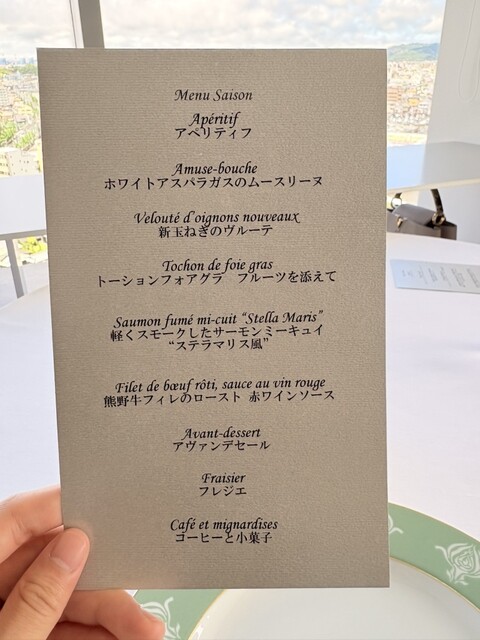 Menu Saison
Apéritif
アペリティフ
Amuse-bouche
ホワイトアスパラガスのムースリーヌ
Velouté d'oignons nouveaux
新玉ねぎのヴルーテ
Tochon de foie gras
トーションフォアグラ　フルーツを添えて
Saumon fumé mi-cuit "Stella Maris"
軽くスモークしたサーモンミーキュイ
“ステラマリス風”
Filet de bœuf rôti, sauce au vin rouge
熊野牛フィレのロースト 赤ワインソース
Avant-dessert
アヴァンデセール
Fraisier
フレジエ
Café et mignardises
コーヒーと小菓子